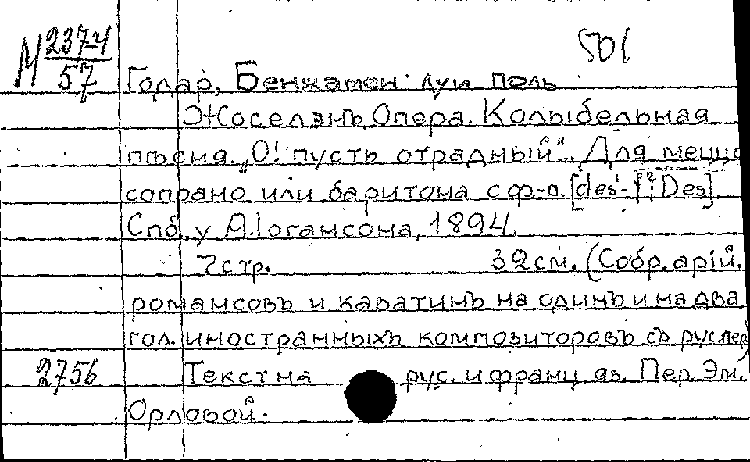 М 237-4/57 501
Годар, Бенжамен Луи Поль
Жоселэнъ. Опера. Колыбельная
пѣсня „О! пусть отрадный". Для меццо
сопрано или баритона с ф-п. [des'-f²; Des]
Спб. у А. Іогансона, 1894.
7 стр. 32 см. (Собр. арій,
романсовъ и каватинъ на одинъ и на два
гол. иностранныхъ композиторовъ съ рус. пер.)
2756 Текст на рус. и франц. яз. Пер. Эм.
Орловой.